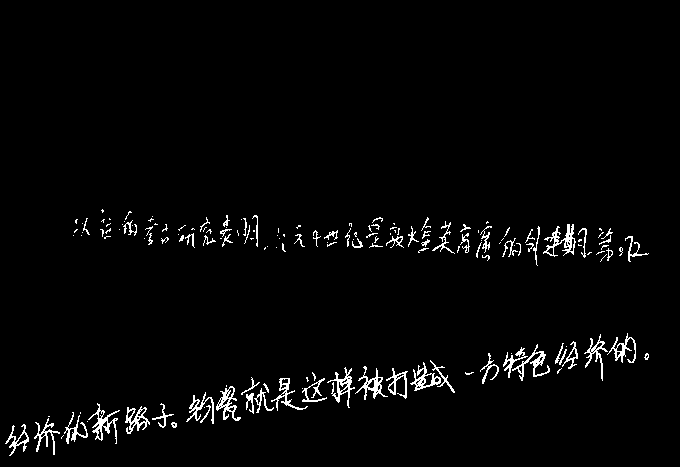 以往的考古研究表明,公元4世纪是敦煌莫高窟的创建期至第272
经济的新路子。钓餐就是这样被打造成一方特色经济的。